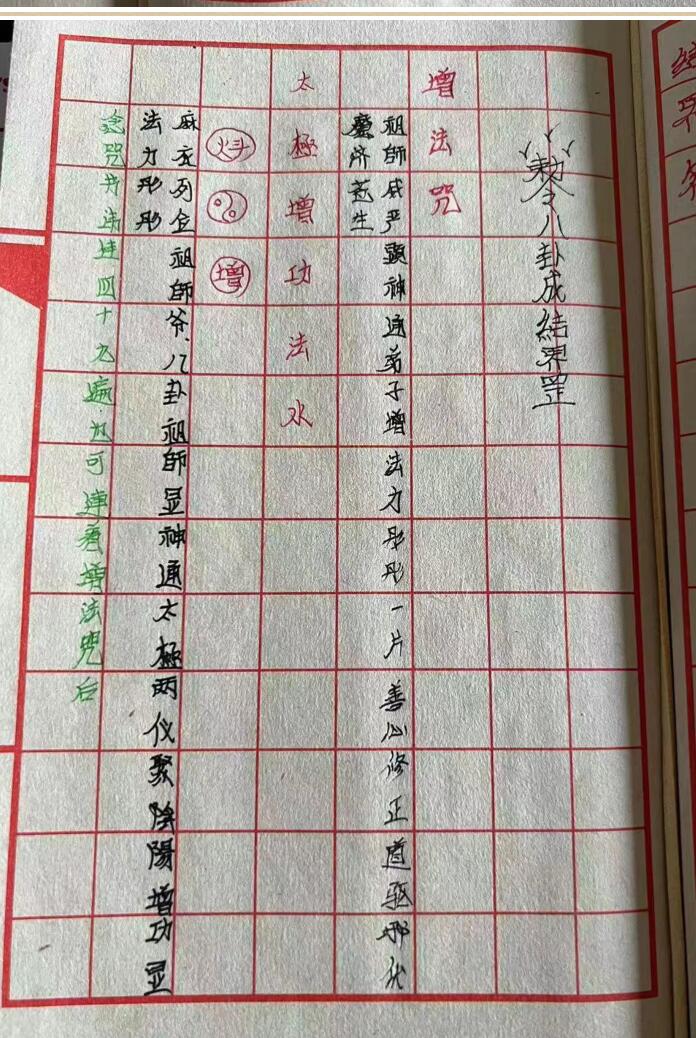 敕令八卦成結界罡
增法咒
祖師威严顕神通弟子增法力彤彤一片善心修正道驱邪伏
魔济苍生
太極增功法水
增
麻衣列位祖師爷八卦祖師显神通太極两仪聚陰陽增功显
法力彤彤
念咒四十九遍也可连着增法咒后